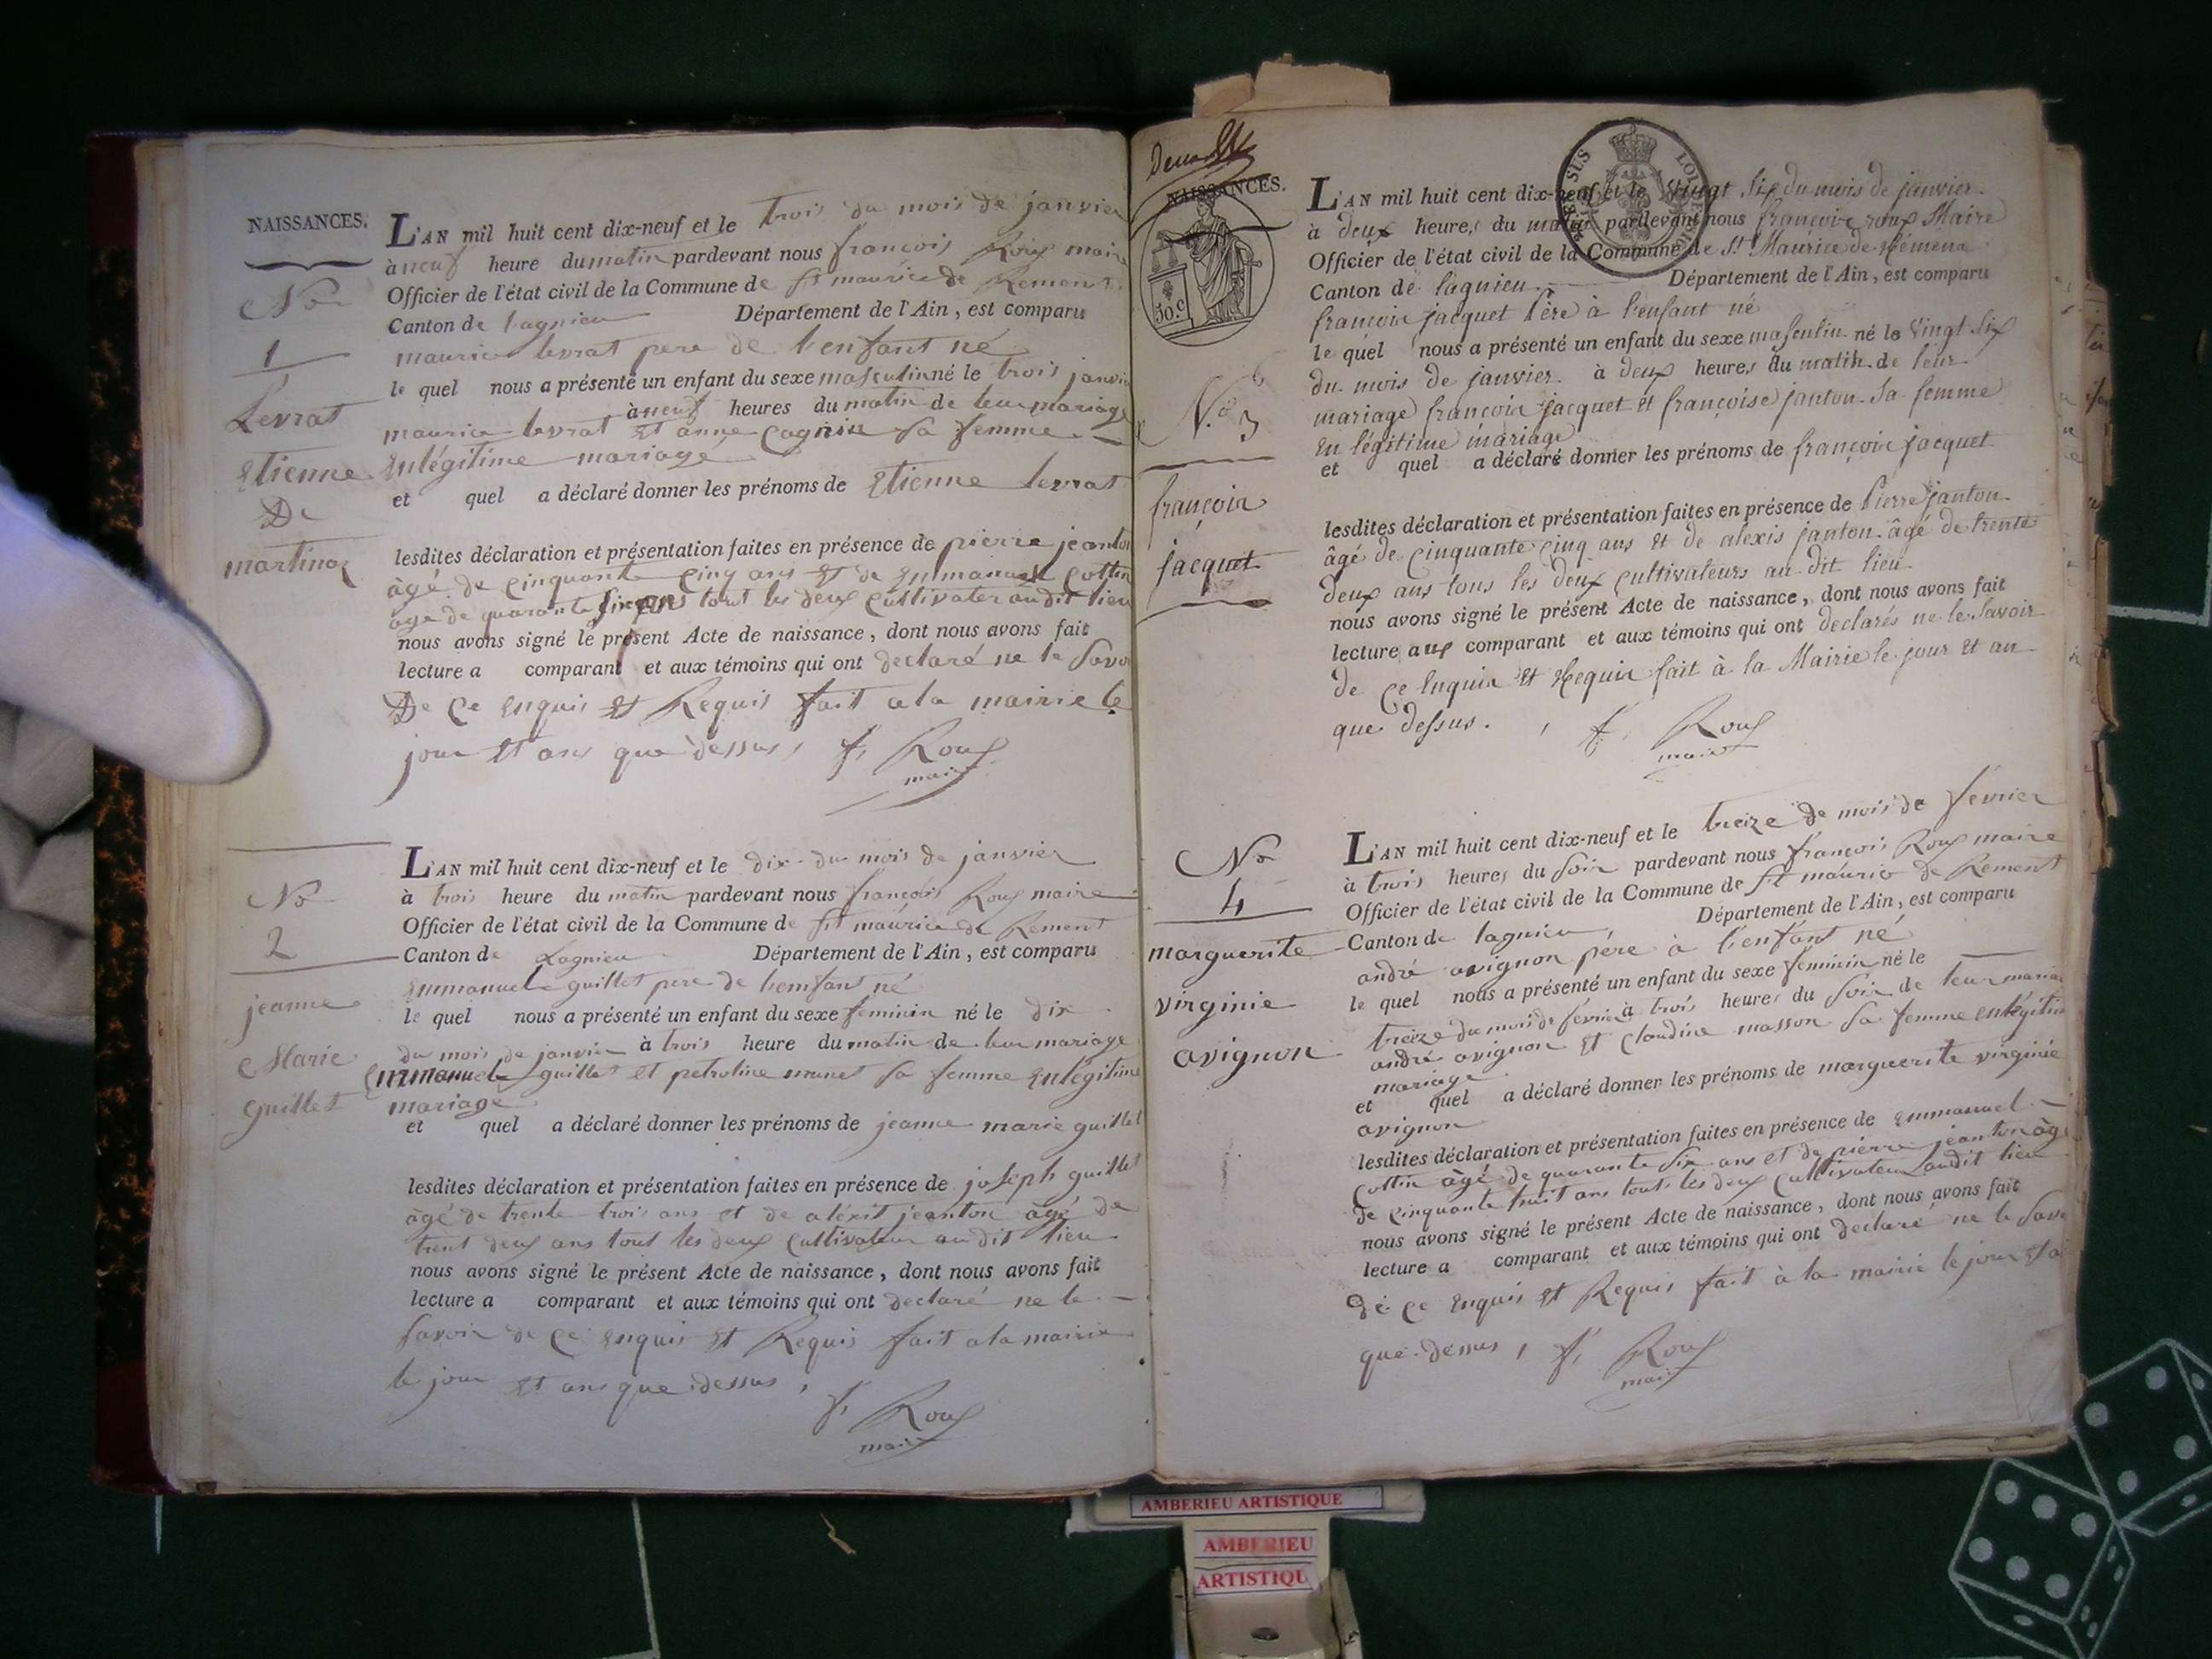 NAISSANCES.
No
1
Levrat
Etienne
De
martinaz
L'AN mil huit cent dix-neuf et le trois du mois de janvier
à neuf heure du matin pardevant nous françois Roux maire
Officier de l'état civil de la Commune de St maurice de Remens
Canton de lagnieu Département de l'Ain, est comparu
maurice levrat pere de l'enfant né
le quel nous a présenté un enfant du sexe masculin né le trois janvier
à neuf heures du matin de leur mariage
maurice levrat Et anne Cagnin sa femme
En légitime mariage
et quel a déclaré donner les prénoms de Etienne levrat
lesdites déclaration et présentation faites en présence de pierre jeanton
âgé de cinquante cinq ans Et de Emmanuel Cottin
age de quarante six ans tout les deux Cultivater audit lieu
nous avons signé le présent Acte de naissance, dont nous avons fait
lecture a comparant et aux témoins qui ont declaré ne le Savo
De Ce Enquis Et Requis fait a la mairie le
jour Et ans que dessus, f, Roux
maire
No
2
jeanne
Marie
guillet
L'AN mil huit cent dix-neuf et le dix du mois de janvier
à trois heure du matin pardevant nous françois Roux maire
Officier de l'état civil de la Commune de St maurice de Remens
Canton de Lagnieu Département de l'Ain, est comparu
Emmanuel guillet pere de l'emfant né
le quel nous a présenté un enfant du sexe feminin né le dix
du mois de janvier à trois heure du matin de leur mariage
Emmanuel guillet et petroline sa femme En légitime
mariage
et quel a déclaré donner les prénoms de jeanne marie guillet
lesdites déclaration et présentation faites en présence de joseph guillet
âgé de trente trois ans et de aléxit jeanton âgé de
trent deux ans tout les deux Cultivateur audit lieu
nous avons signé le présent Acte de naissance, dont nous avons fait
lecture a comparant et aux témoins qui ont declaré ne le
Savoir de Ce Enquis Et Requis fait a la mairie
le jour Et ans que dessus, f, Roux
maire
NAISSANCES.
50.c
No 3
françois
jacquet
L'AN mil huit cent dix-neuf et le Vingt Six du mois de janvier
à deux heures du matin pardevant nous françois roux Maire
Officier de l'état civil de la Commune de St Maurice de Rémens
Canton de lagnieu. Département de l'Ain, est comparu
françois jacquet Père à l'enfant né
le quel nous a présenté un enfant du sexe masculin né le Vingt Six
du mois de janvier à deux heures du matin de leur
mariage françois jacquet et françoise janton Sa femme
En légitime mariage
et quel a déclaré donner les prénoms de françois jacquet
lesdites déclaration et présentation faites en présence de Pierre janton
âgé de cinquante cinq ans Et de alexis janton âgé de trente
deux ans tous les deux Cultivateurs au dit lieu
nous avons signé le présent Acte de naissance, dont nous avons fait
lecture aux comparant et aux témoins qui ont declarés ne le Savoir
de Ce Enquis Et Requis fait à la Mairie le jour Et an
que dessus. f. Roux
maire
No
4
marguerite
virginie
avignon
L'AN mil huit cent dix-neuf et le treize de mois de février
à trois heures du Soir pardevant nous françois Roux maire
Officier de l'état civil de la Commune de St maurice de Remens
Canton de lagnieu Département de l'Ain, est comparu
andré avignon père à l'enfant né
le quel nous a présenté un enfant du sexe féminin né le
treize du mois de février à trois heures du Soir de leur maria
andré avignon Et Claudine masson Sa femme En légitim
mariage
et quel a déclaré donner les prénoms de marguerite virginie
avignon
lesdites déclaration et présentation faites en présence de Emmanuel
Cottin âgé de quarante Six ans et de pierre jeanton âgé
de cinquante huit ans touts les deux Cultivateur audit lieu
nous avons signé le présent Acte de naissance, dont nous avons fait
lecture a comparant et aux témoins qui ont declaré ne le Savo
de Ce Enquis Et Requis fait à la mairie le jour Et a
que dessus, f, Roux
maire
AMBERIEU ARTISTIQUE
AMBERIEU
ARTISTIQU